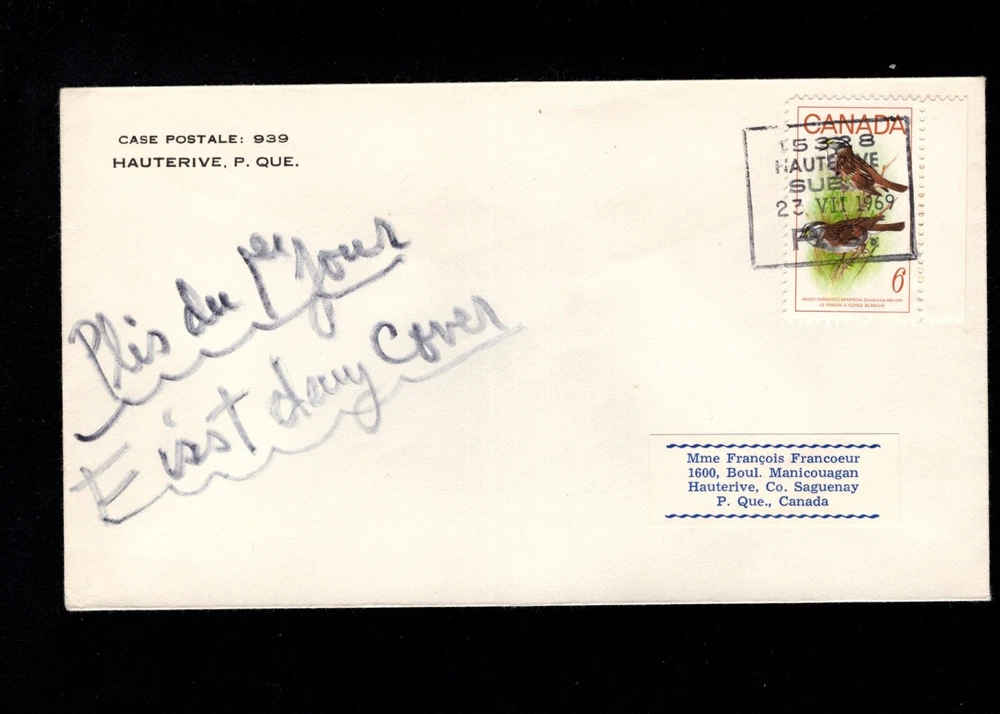 CASE POSTALE: 939
HAUTERIVE, P. QUE.
CANADA
15338
HAUTERIVE
SUB.
23 VII 1969
P.
6
WHITE-THROATED SPARROW
LE PINSON À GORGE BLANCHE
Plis du 1er Jour
First day Cover
Mme François Francoeur
1600, Boul. Manicouagan
Hauterive, Co. Saguenay
P. Que., Canada